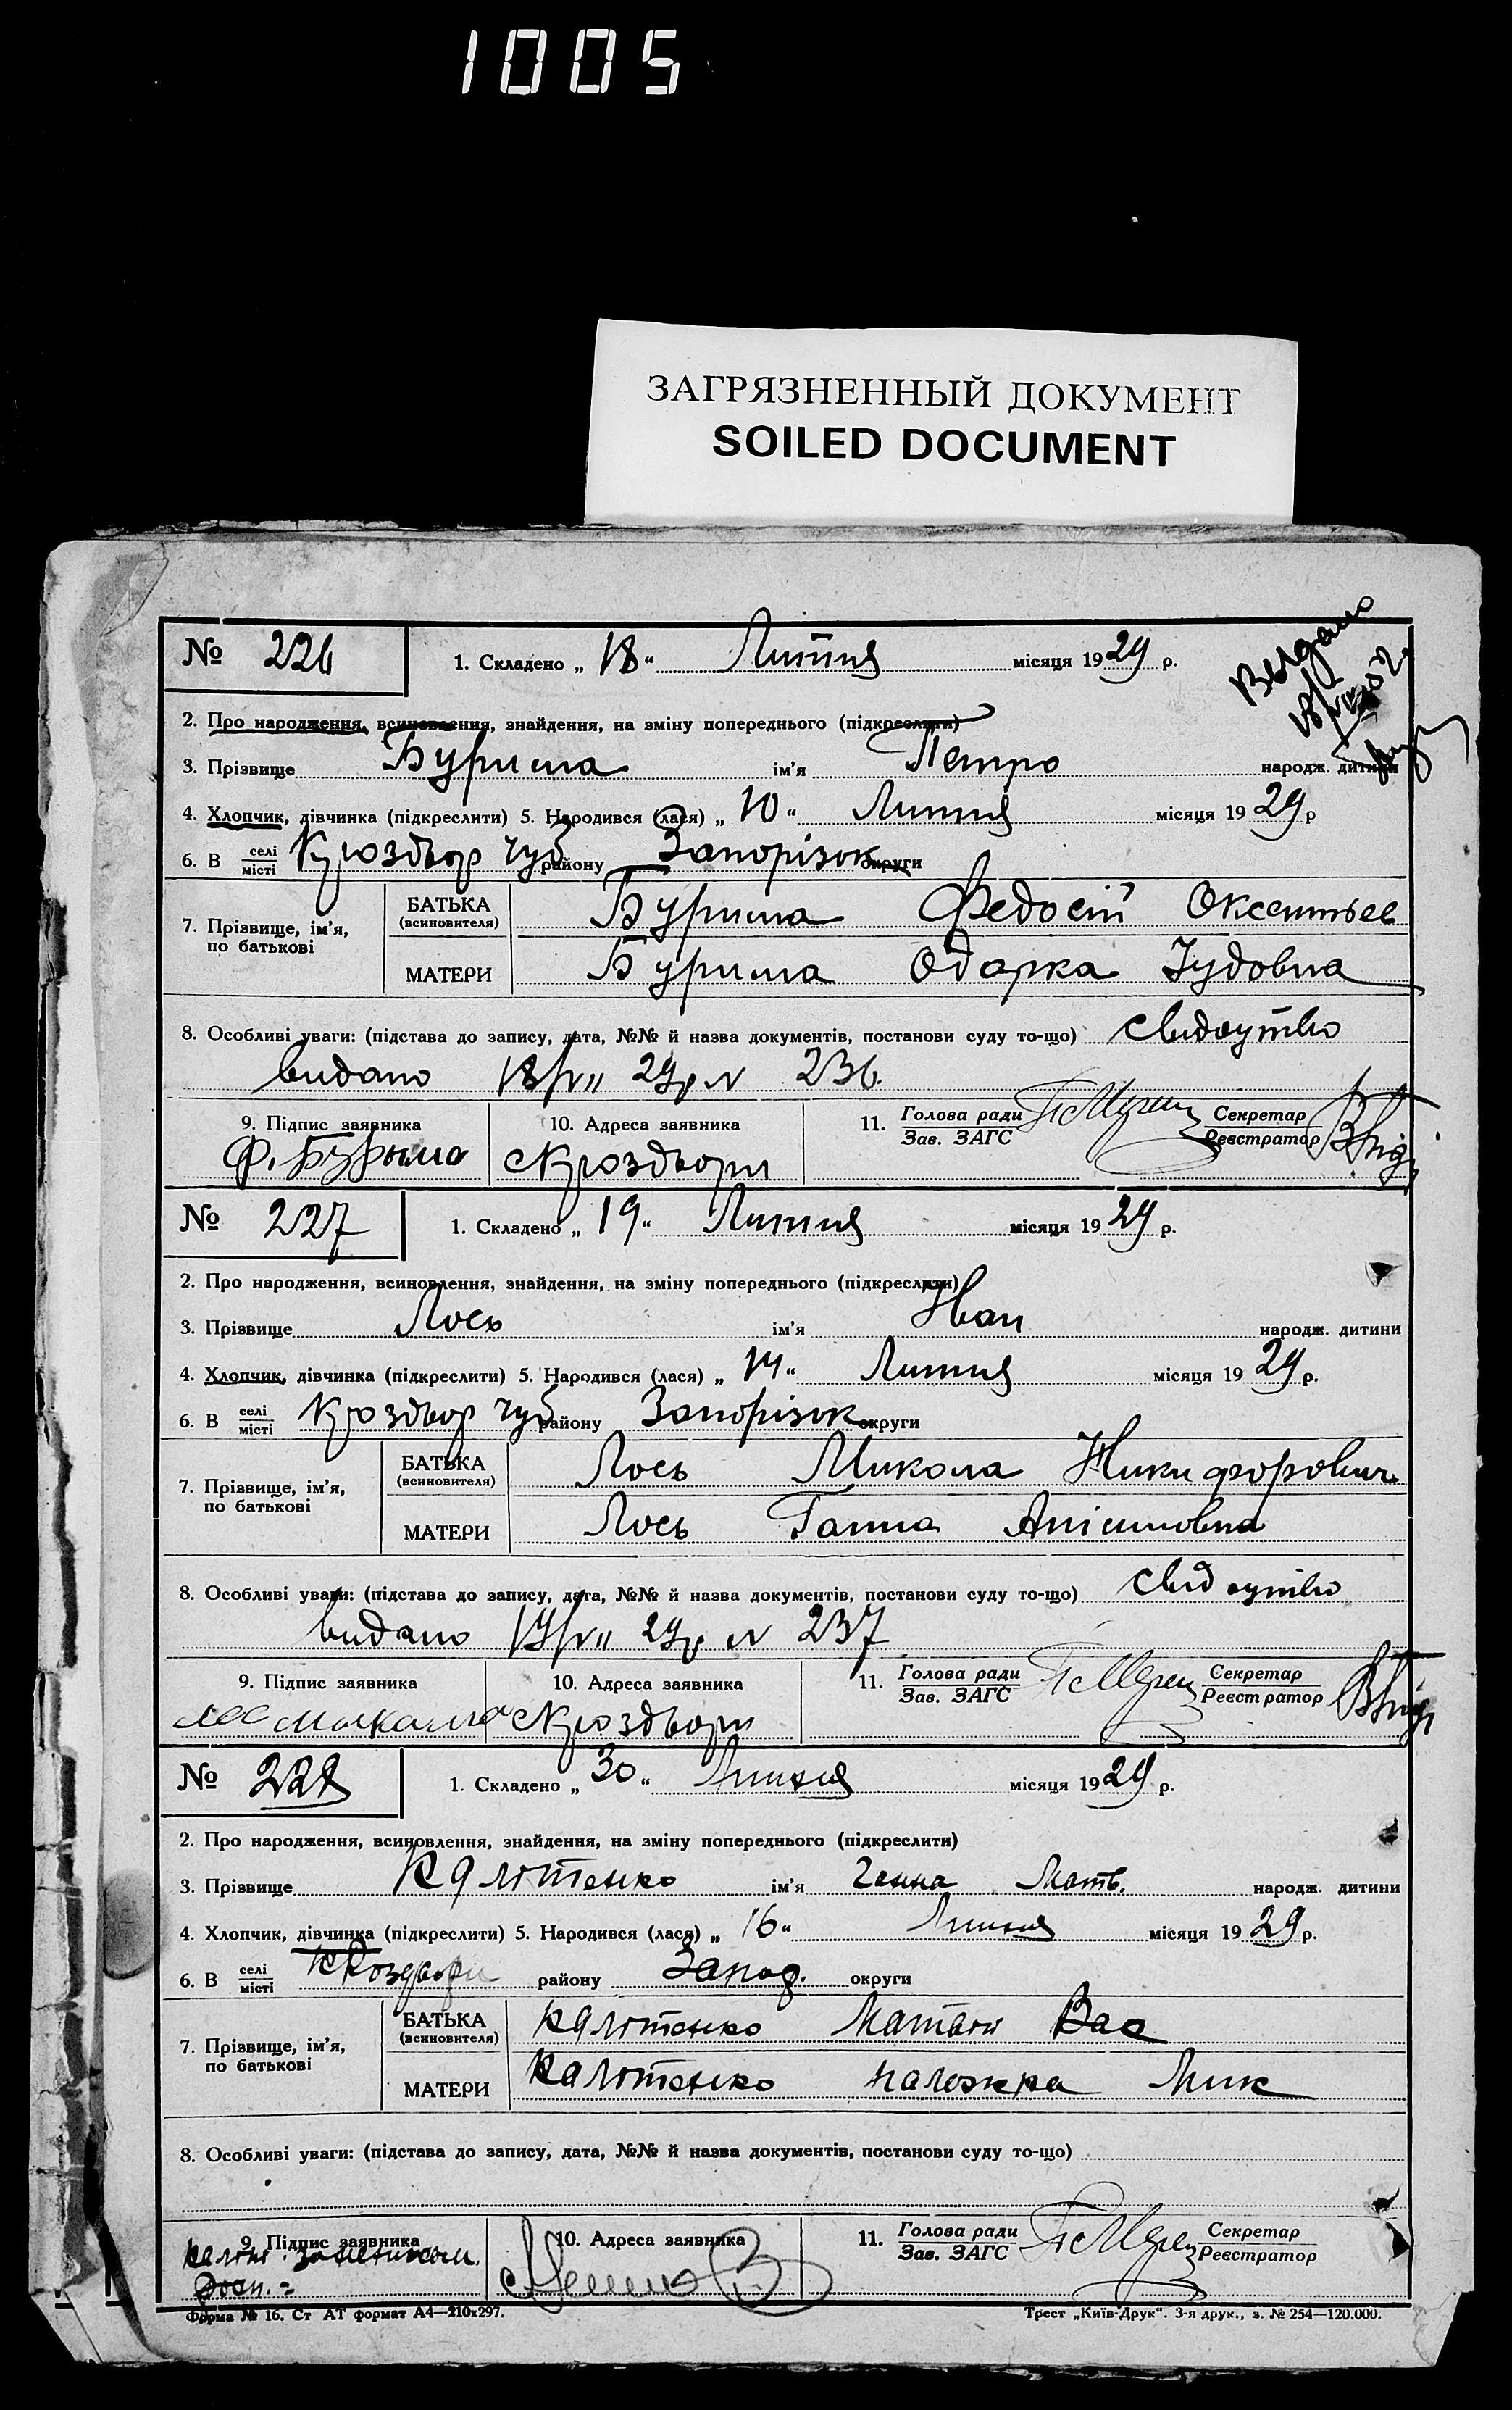 1005
ЗАГРЯЗНЕННЫЙ ДОКУМЕНТ
SOILED DOCUMENT
№ 226 1. Складено „ 18 “ Липня місяця 1929 р.
2. Про народження, всиновлення, знайдення, на зміну попереднього (підкреслити)
3. Прізвище Бурима ім'я Петро народж. дитини
4. Хлопчик, дівчинка (підкреслити) 5. Народився (лася) „ 10 “ Липня місяця 1929 р
6. В селі місті Кроздвор Чуб району Запорізок округи
7. Прізвище, ім'я, по батькові
БАТЬКА (всиновителя) Бурима Федосій Оксентьев
МАТЕРИ Бурима Одарка Іудовна
8. Особливі уваги: (підстава до запису, дата, №№ й назва документів, постанови суду то-що) свидоутво
видано 18/VII 29р N 236.
9. Підпис заявника 10. Адреса заявника 11. Голова ради Зав. ЗАГС Секретар Реєстратор
Ф. Бурыма с Кроздвори
№ 227 1. Складено „ 19 “ Липня місяця 1929 р.
2. Про народження, всиновлення, знайдення, на зміну попереднього (підкреслити)
3. Прізвище Лось ім'я Иван народж. дитини
4. Хлопчик, дівчинка (підкреслити) 5. Народився (лася) „ 14 “ Липня місяця 1929 р.
6. В селі місті Кроздвор Чуб району Запорізок округи
7. Прізвище, ім'я, по батькові
БАТЬКА (всиновителя) Лось Микола Никифорович
МАТЕРИ Лось Ганна Анісимовна
8. Особливі уваги: (підстава до запису, дата, №№ й назва документів, постанови суду то-що) свидоутво
видано 19/VII 29р N 237
9. Підпис заявника 10. Адреса заявника 11. Голова ради Зав. ЗАГС Секретар Реєстратор
с Кроздвори
№ 228 1. Складено „ 30 “ Липня місяця 1929 р.
2. Про народження, всиновлення, знайдення, на зміну попереднього (підкреслити)
3. Прізвище Калітенко ім'я Ганна Матв. народж. дитини
4. Хлопчик, дівчинка (підкреслити) 5. Народився (лася) „ 16 “ Липня місяця 1929 р.
6. В селі місті Кроздвори району Запор. округи
7. Прізвище, ім'я, по батькові
БАТЬКА (всиновителя) Калітенко Матвій Вас
МАТЕРИ Калітенко Палажка Мик
8. Особливі уваги: (підстава до запису, дата, №№ й назва документів, постанови суду то-що)
9. Підпис заявника 10. Адреса заявника 11. Голова ради Зав. ЗАГС Секретар Реєстратор
Форма № 16. Ст АТ формат А4—210х297. Трест „Київ-Друк“. 3-я друк., з. № 254—120.000.